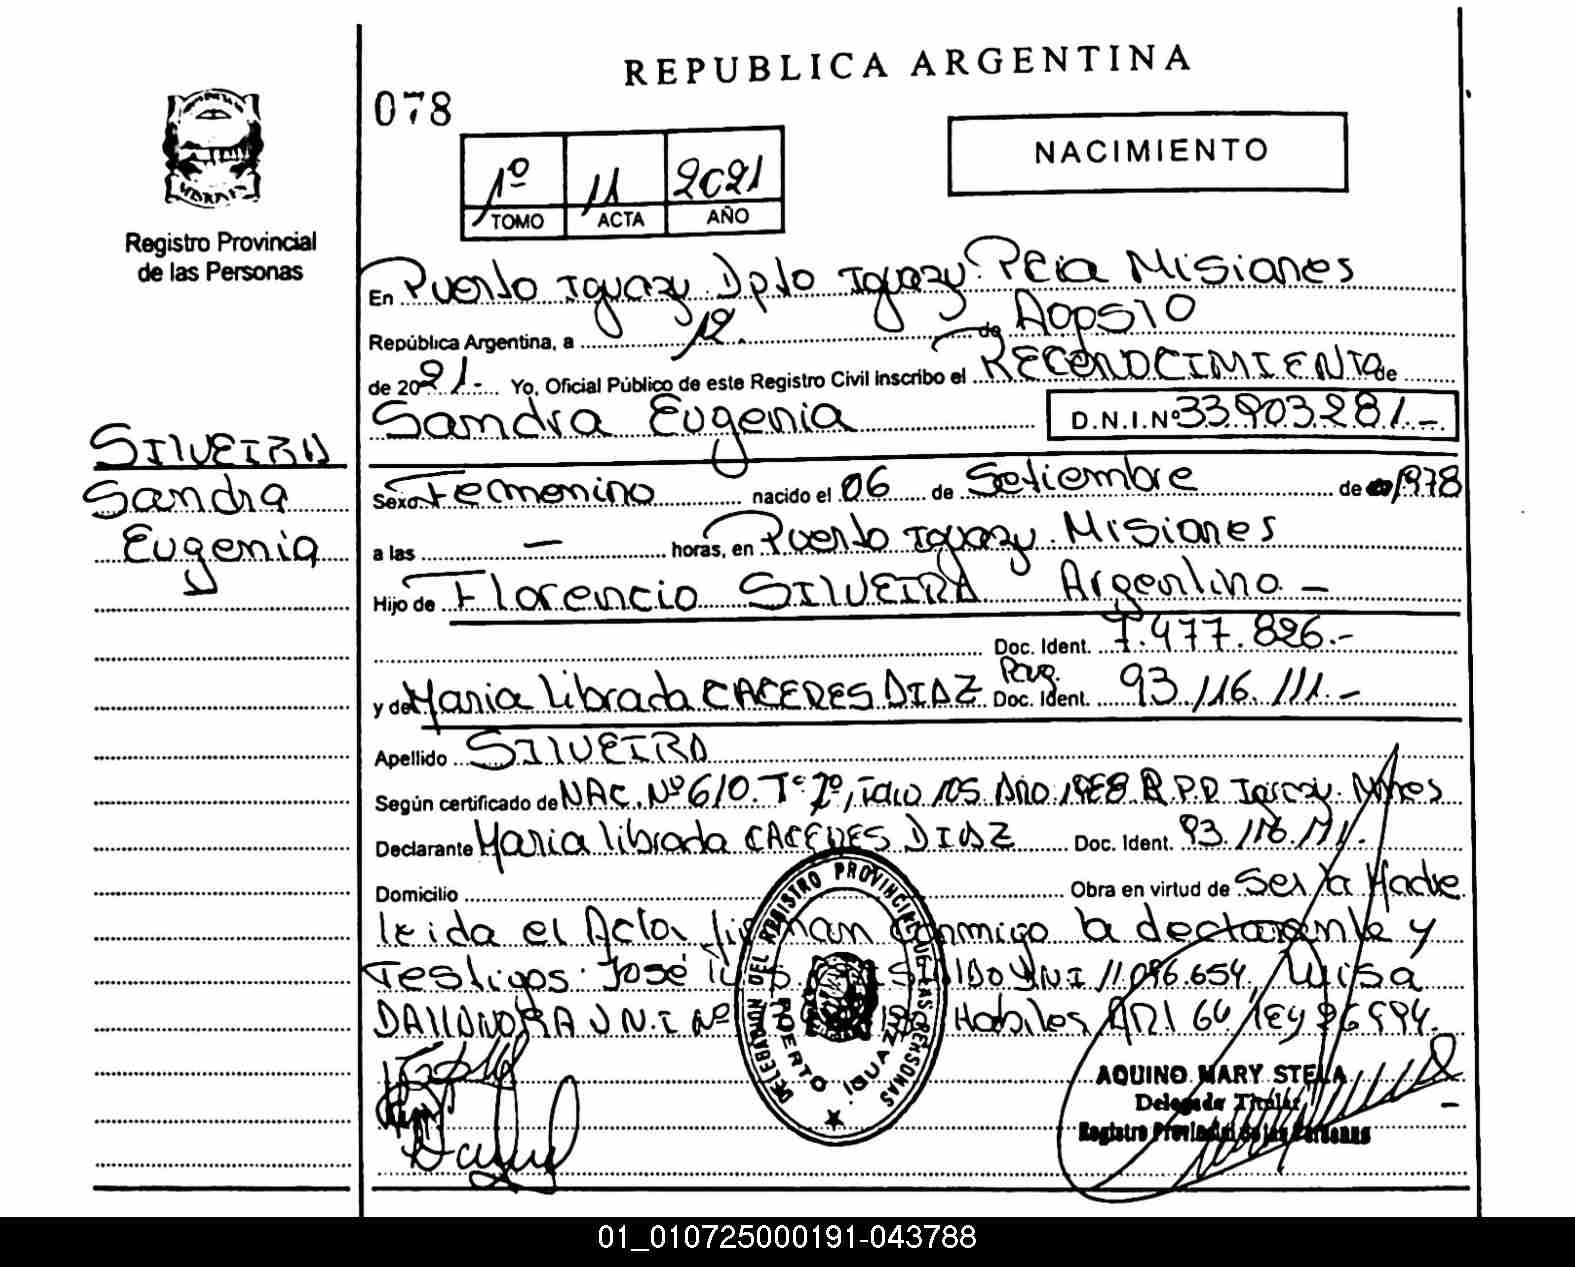 REPUBLICA ARGENTINA
078
NACIMIENTO
1º 11 2021
TOMO ACTA AÑO
Registro Provincial
de las Personas
En Puerto Iguazu Dpto Iguazu Pcia Misiones
República Argentina, a 12. de Agosto
de 2021.- Yo, Oficial Público de este Registro Civil Inscribo el RECONOCIMIENTO de
Sandra Eugenia D.N.I.Nº 33.903.281.-
SILVEIRA
Sandra
Eugenia
Sexo Femenino nacido el 06 de Setiembre de 1978
a las — horas, en Puerto Iguazu. Misiones
Hijo de Florencio SILVEIRA Argentino -
Doc. Ident. 7.477.826.-
y de Maria Librada CACERES DIAZ Parag. Doc. Ident. 93.116.111.-
Apellido SILVEIRA
Según certificado de NAC. Nº 610. Tº 2º, Folio 105 Año 1988 R.P.P Iguazu. Mnes
Declarante Maria Librada CACERES DIAZ Doc. Ident. 93.116.111.
Domicilio Obra en virtud de Ser la Madre
leida el Acta, firman conmigo la declarante y
Testigos: José DNI 11.096.654. Luisa
D.N.I Nº Habiles ART 64 Ley 26994.
DELEGACION DEL REGISTRO PROVINCIAL DE LAS PERSONAS
PUERTO IGUAZU
AQUINO MARY STELA
Delegada Titular
Registro Provincial de las Personas
01_010725000191-043788